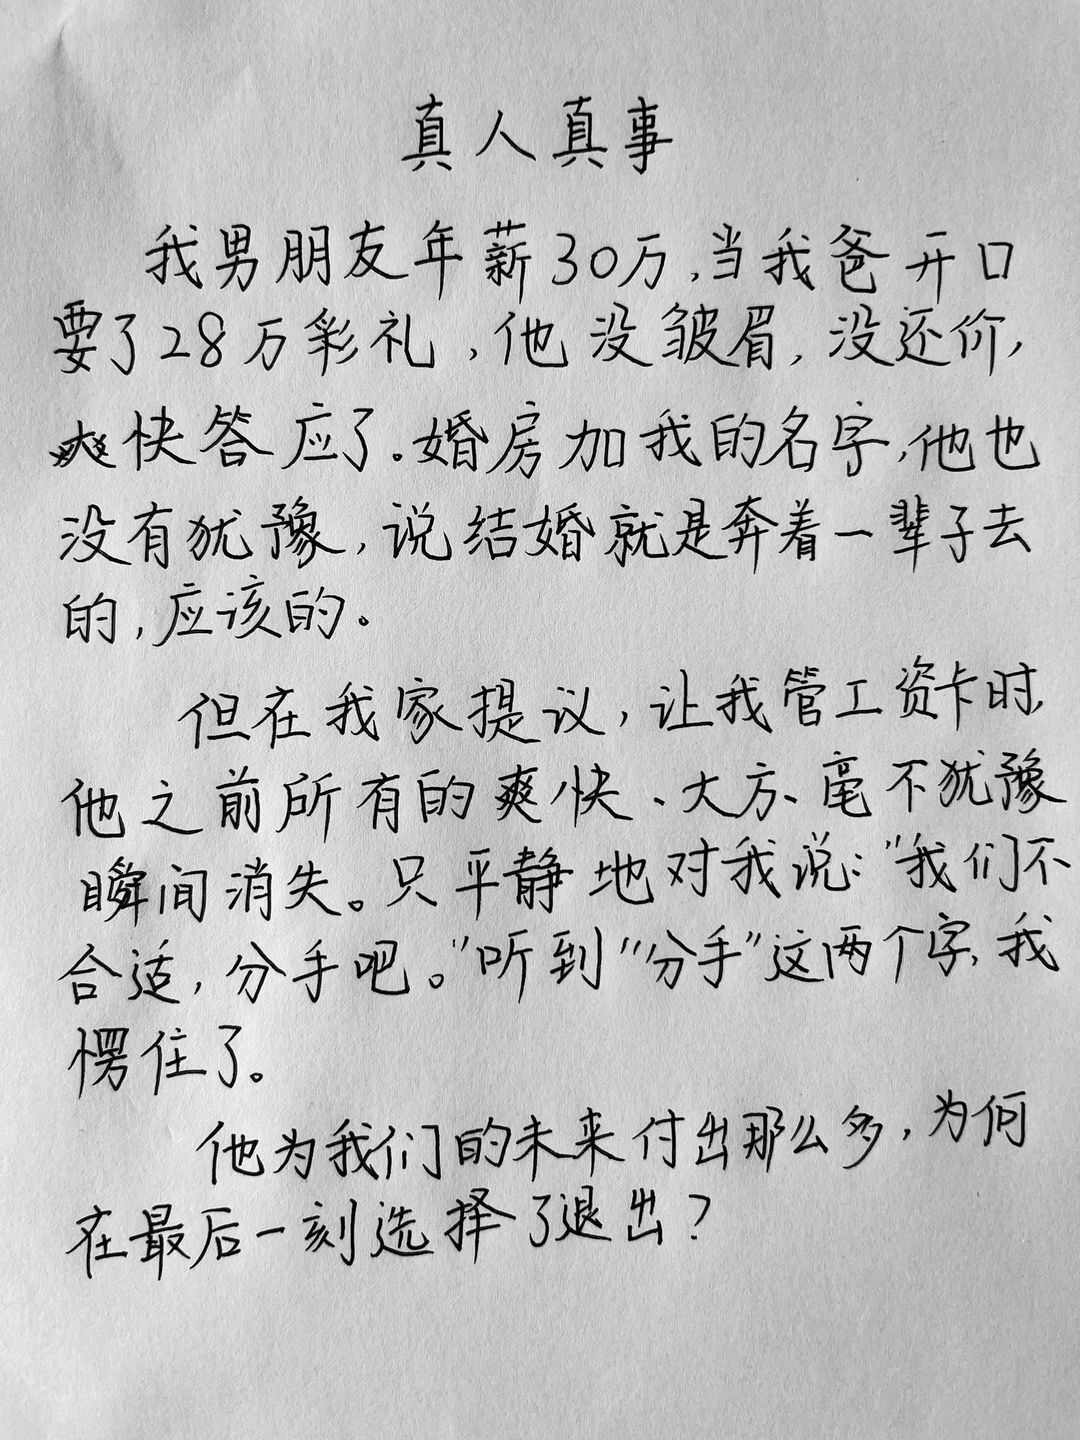 真人真事
我男朋友年薪30万,当我爸开口
要了28万彩礼,他没皱眉,没还价,
爽快答应了。婚房加我的名字,他也
没有犹豫,说结婚就是奔着一辈子去
的,应该的。
但在我家提议,让我管工资卡时,
他之前所有的爽快、大方、毫不犹豫
瞬间消失。只平静地对我说:"我们不
合适,分手吧。"听到"分手"这两个字,我
愣住了。
他为我们的未来付出那么多,为何
在最后一刻选择了退出?